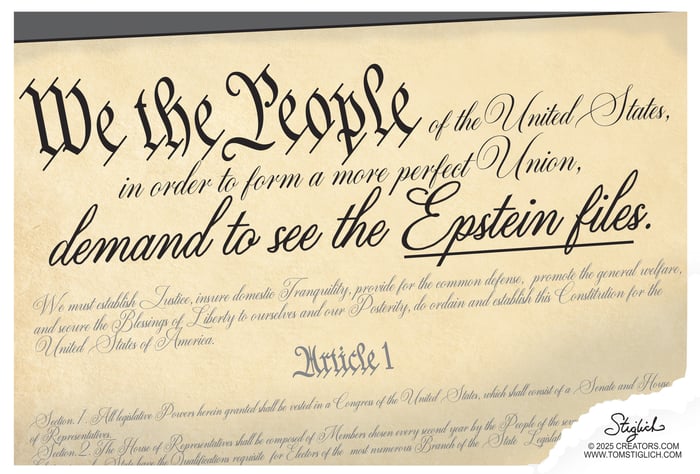 We the People of the United States,
in order to form a more perfect Union,
demand to see the Epstein files.
We must establish Justice, insure domestic Tranquility, provide for the common defense, promote the general welfare,
and secure the Blessings of Liberty to ourselves and our Posterity, do ordain and establish this Constitution for the
United States of America.
Article 1
Section. 1. All legislative Powers herein granted shall be vested in a Congress of the United States, which shall consist of a Senate and House
of Representatives.
Section. 2. The House of Representatives shall be composed of Members chosen every second year by the People of the
State shall have the Qualifications requisite for Electors of the most numerous Branch of the State
Stiglich
© 2025 CREATORS.COM
WWW.TOMSTIGLICH.COM